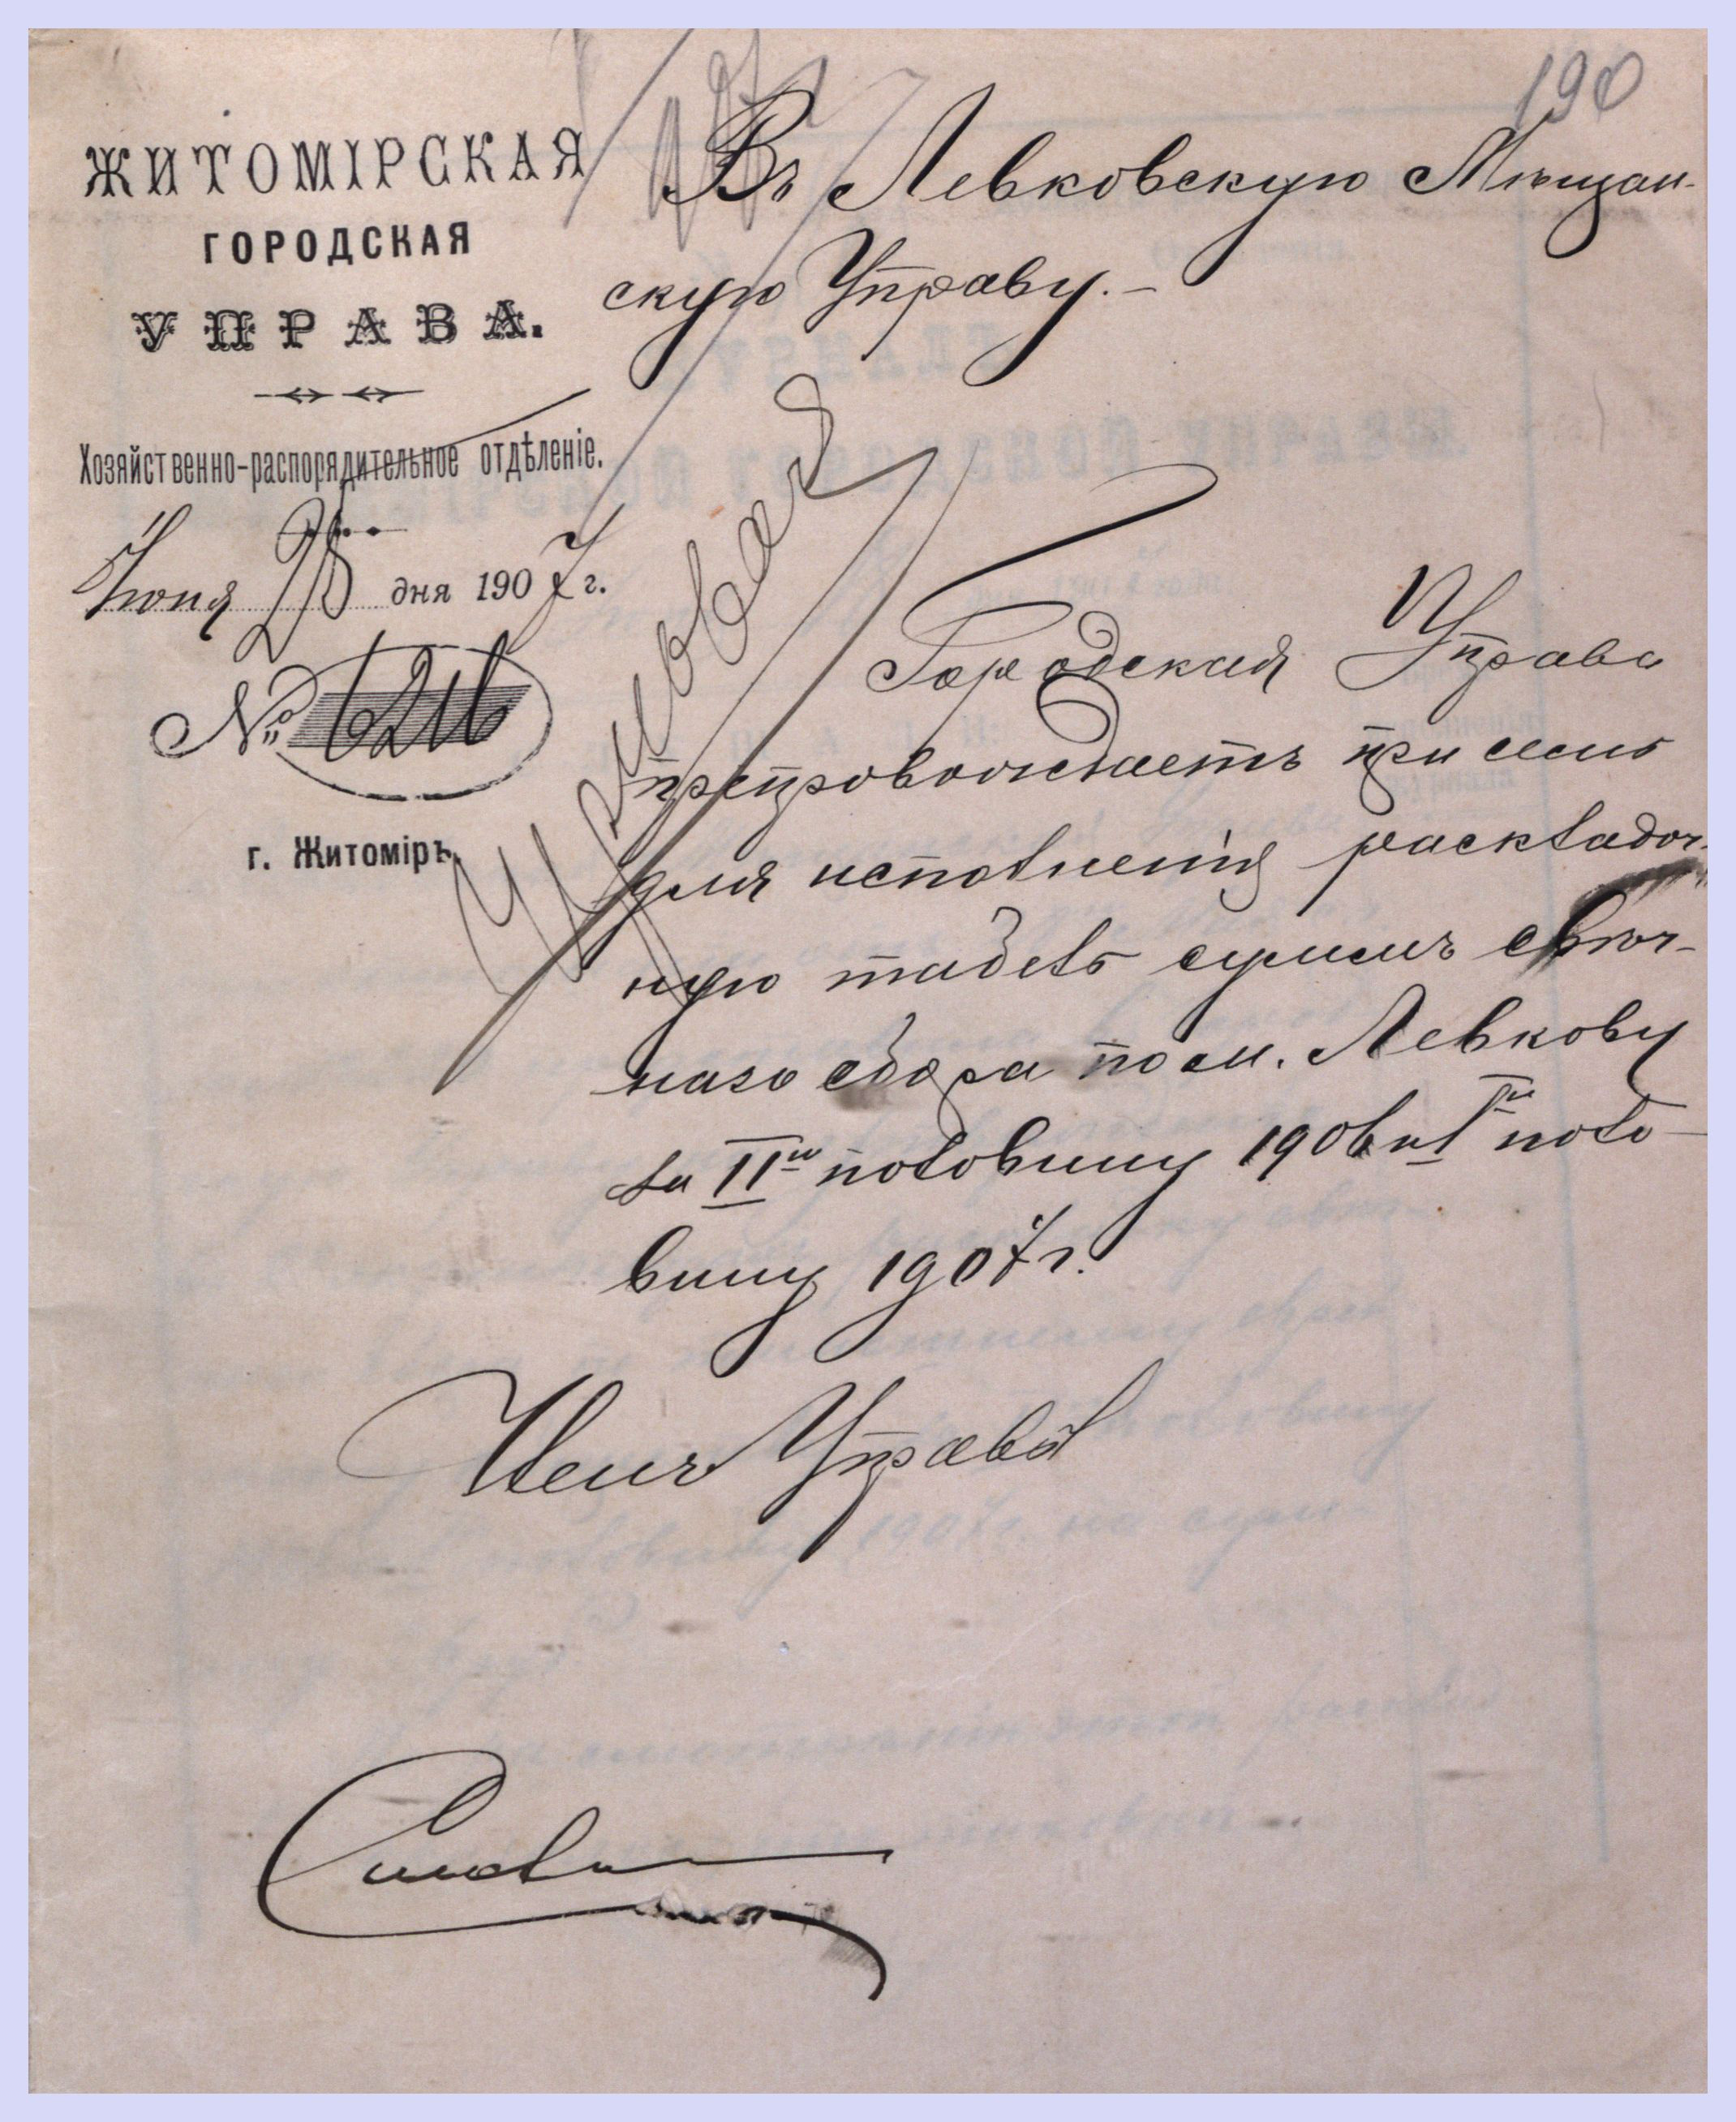 190
ЖИТОМІРСКАЯ
ГОРОДСКАЯ
УПРАВА.
Хозяйственно-распорядительное отдѣленіе.
Іюня 25 дня 1907 г.
№ 6216
г. Житоміръ
Въ Левковскую Мѣщан-
скую Управу.-
Городская Управа
препровождаетъ при семъ
для исполненія расkладоч-
ную табель суммъ свѣч-
наго сбора по м. Левкову
за IIю половину 1906 и Iю поло-
вину 1907 г.
Членъ Управы